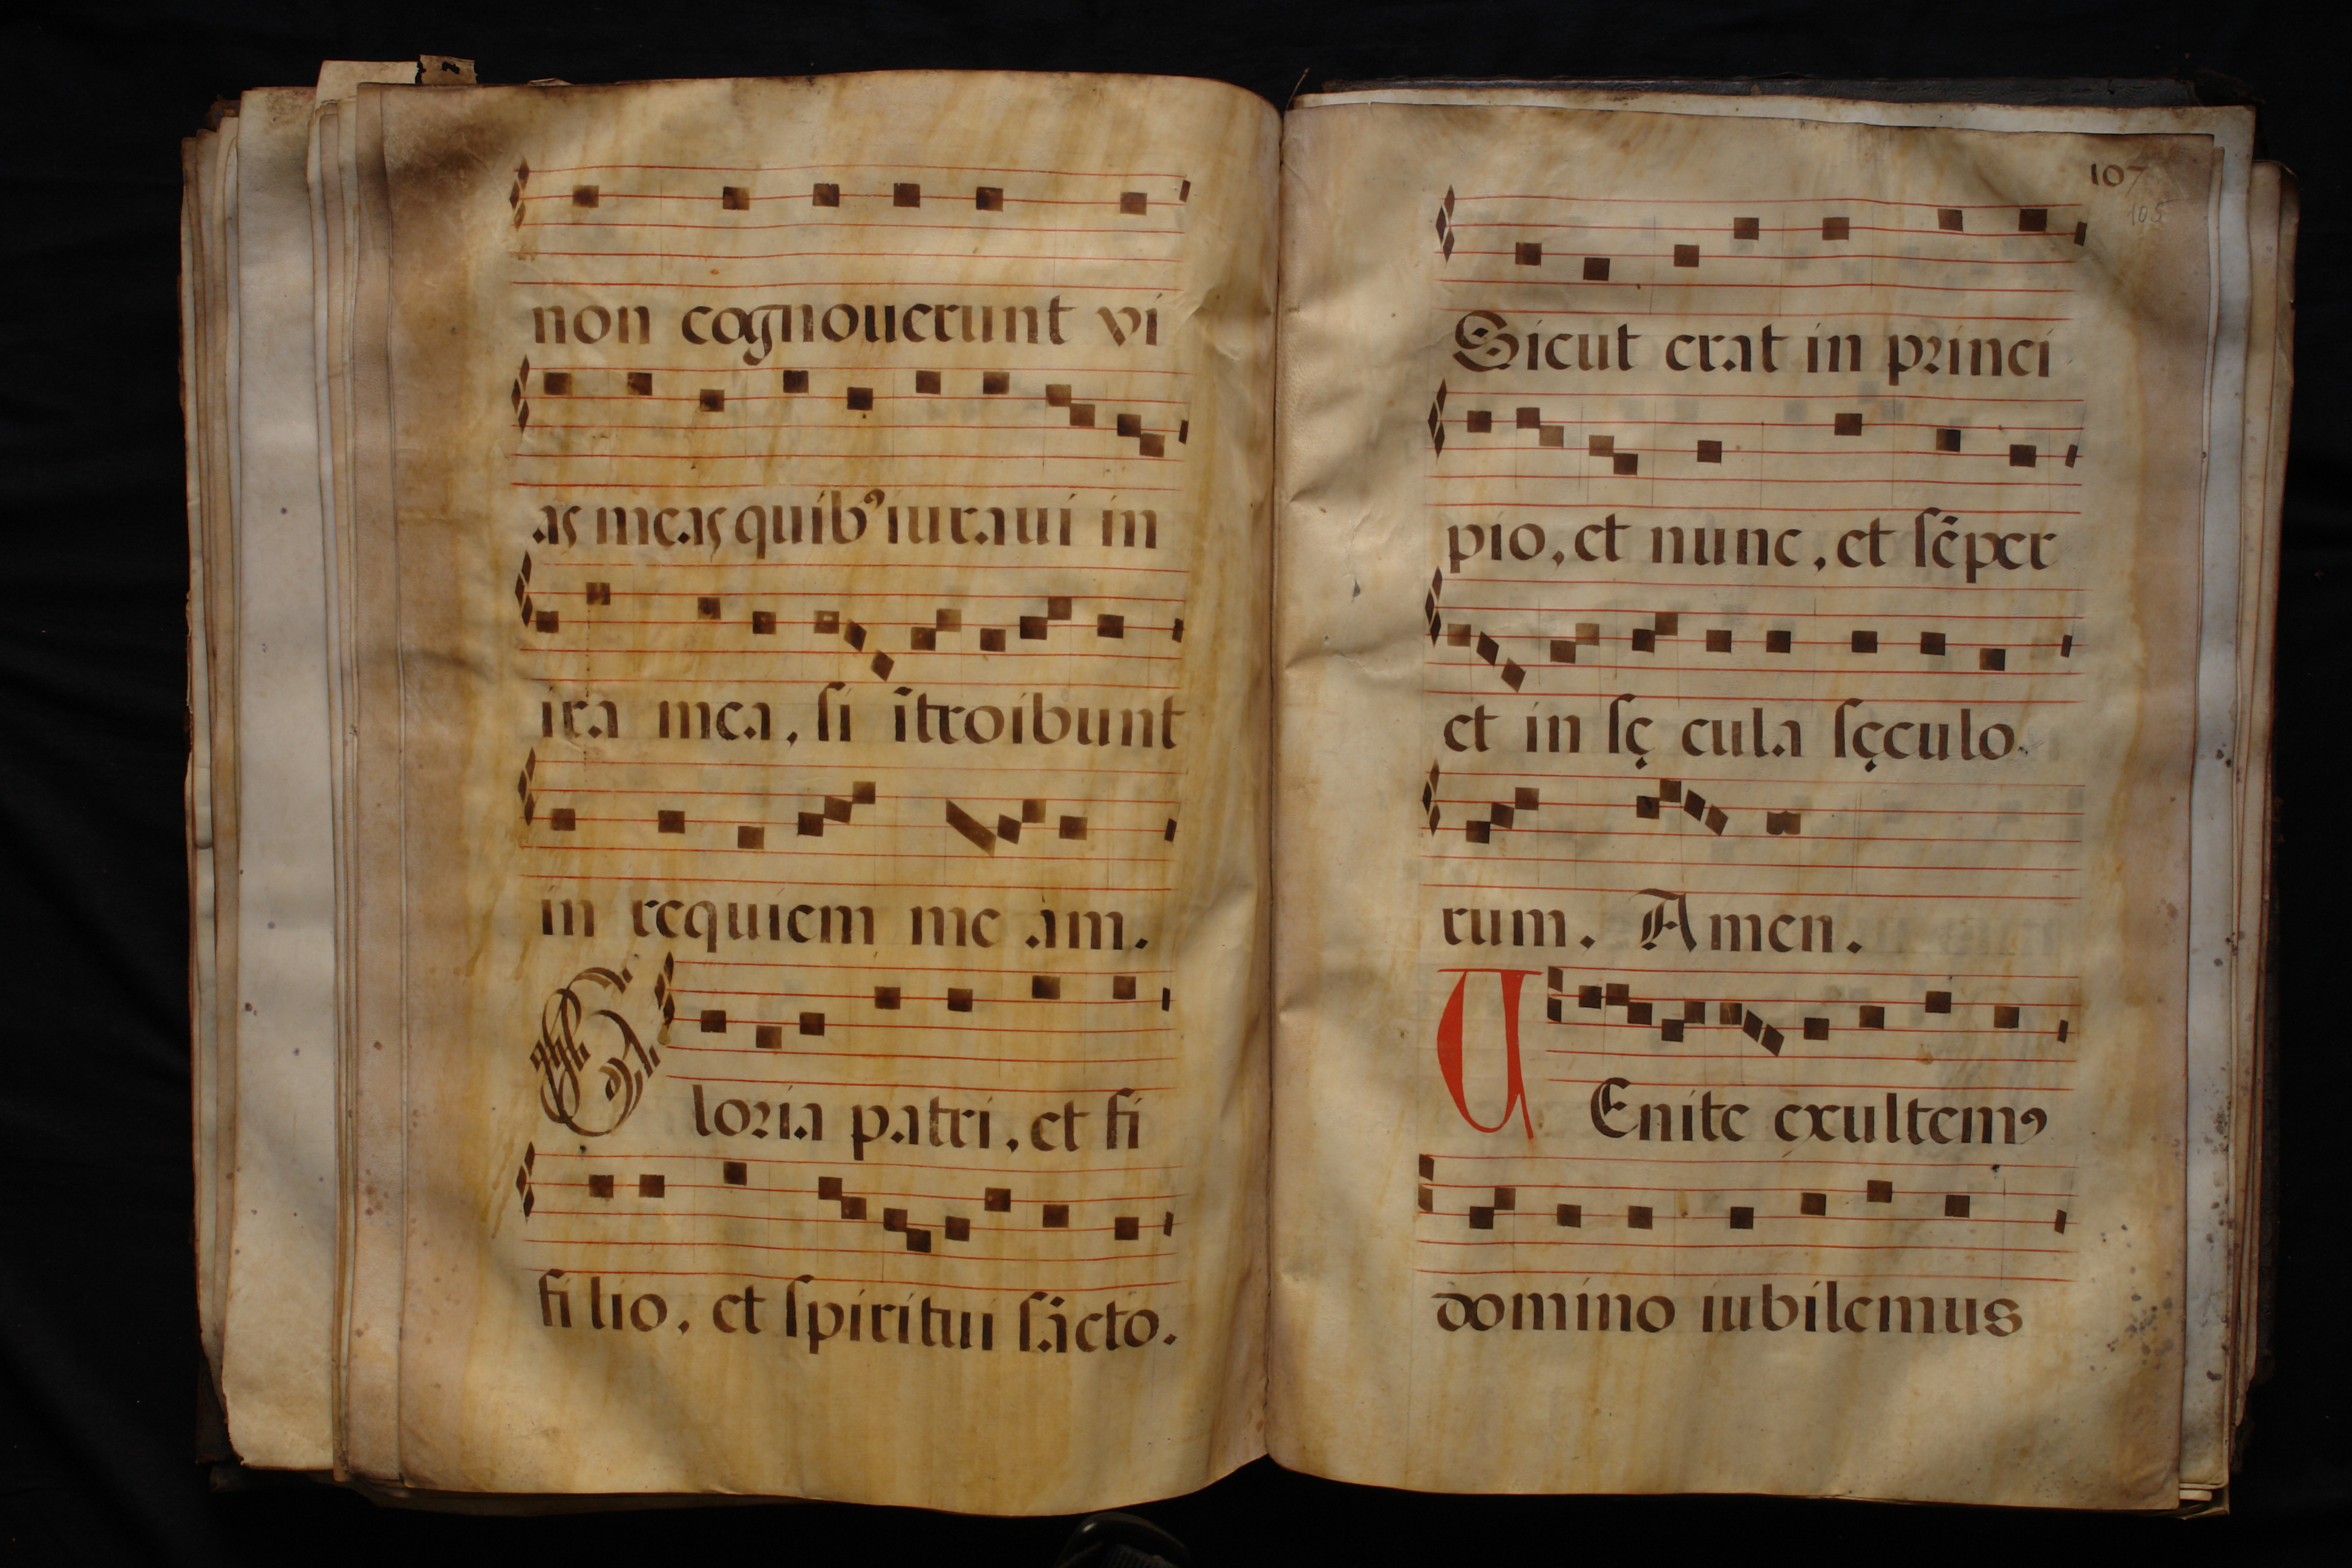 non cognouerunt vi
as meas quibꝰ iuraui in
ira mea, ſi ītroibunt
in requiem me am.
Gloria patri, et fi
filio, et ſpiritui ſācto.
107
105
Sicut erat in princi
pio, et nunc, et ſēper
et in ſę cula ſęculo
rum. Amen.
UEnite exultemꝰ
domino iubilemus